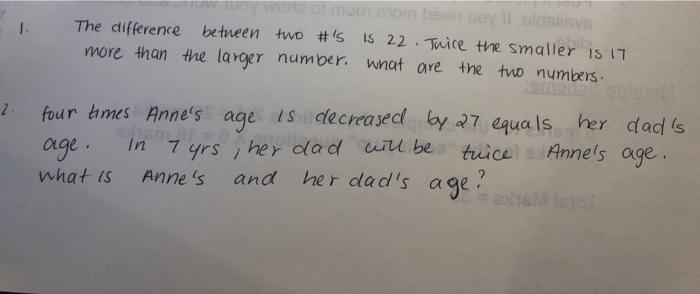 1. The difference between two #'s is 22. Twice the smaller is 17
more than the larger number. what are the two numbers.
2. four times Anne's age is decreased by 27 equals her dad's
age. In 7 yrs, her dad will be twice Anne's age.
what is Anne's and her dad's age?